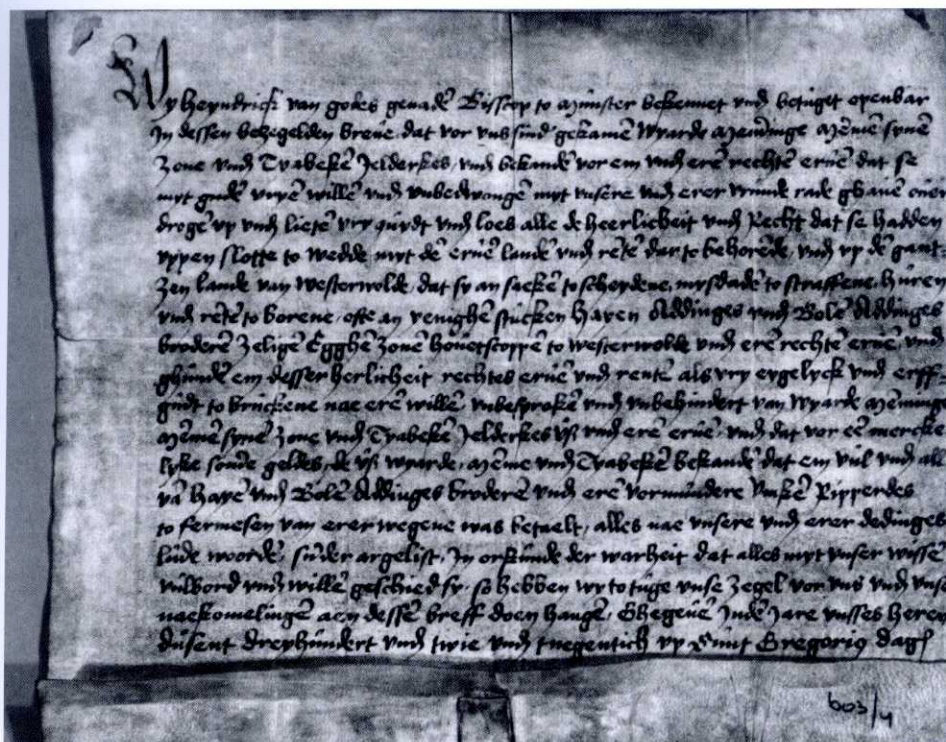 Wy heyndrick van godes genadē Bisscop to Mūnster bekennet vnd betuget openbar
In dessen bezegelden breue, dat vor vns sind gekamē Wyarde Mēninge Mēmē synē
zone vnd Tyabekē Jelderkes, vnd bekandē vor em vnd erē rechtē eruē dat se
myt gudē vryē willē vnd vnbedwongē myt vnsere vnd erer vrund rade ghauē ouer
drogē vp vnd lietē vry quydt vnd loes alle de heerlicheit vnd Recht dat se hadden
vppen slotte to wedde myt dē eruē lande vnd rētē dar to behorēde, vnd vp dē gant
zen lande van westerwolde, dat sy an saekē to scheydene, mysdadē to straffene, hūren
vnd rētē to borene, efte an yenighē stūcken Hayen Addinges vnd Bolē Addinges
broderē zeligē Egghē zonē houetscoppē to westerwolde vnd erē rechtē eruē, vnd
ghūndē em desser herlicheit rechtes eruē vnd rentē als vry eygelyck vnd erff
gūdt to brūckene nae erē willē vnbesprokē vnd vnbehindert van Wyarde Mēninge
Mēmē synē zone vnd Tyabekē Jelderkes vſſ vnd erē eruē, vnd dat vor eē mercke
lyke sonde geldes, de vſſ wyarde, Mēme vnd Tyabekē bekandē dat em vul vnd all
vā Hayē vnd Bolē Addinges broderē vnd erē vormūndere Vnikē Ripperdes
to fermesen van erer wegene was betaelt, alles nae vnsere vnd erer dedinges
lūde woordē, sūnder argelist, In orkūnde der warheit dat alles myt vnser wissē
vulbord vnd willē geschied sy, so hebben wy to tuge vnse zegel vor vns vnd vnse
naekomelingē aen dessē breff doen hangē, Ghegeuē Indē Jare vnsses heren
dusent dreyhundert vnd twie vnd tnegentich vp Sūnt Gregorius dagh
603/4